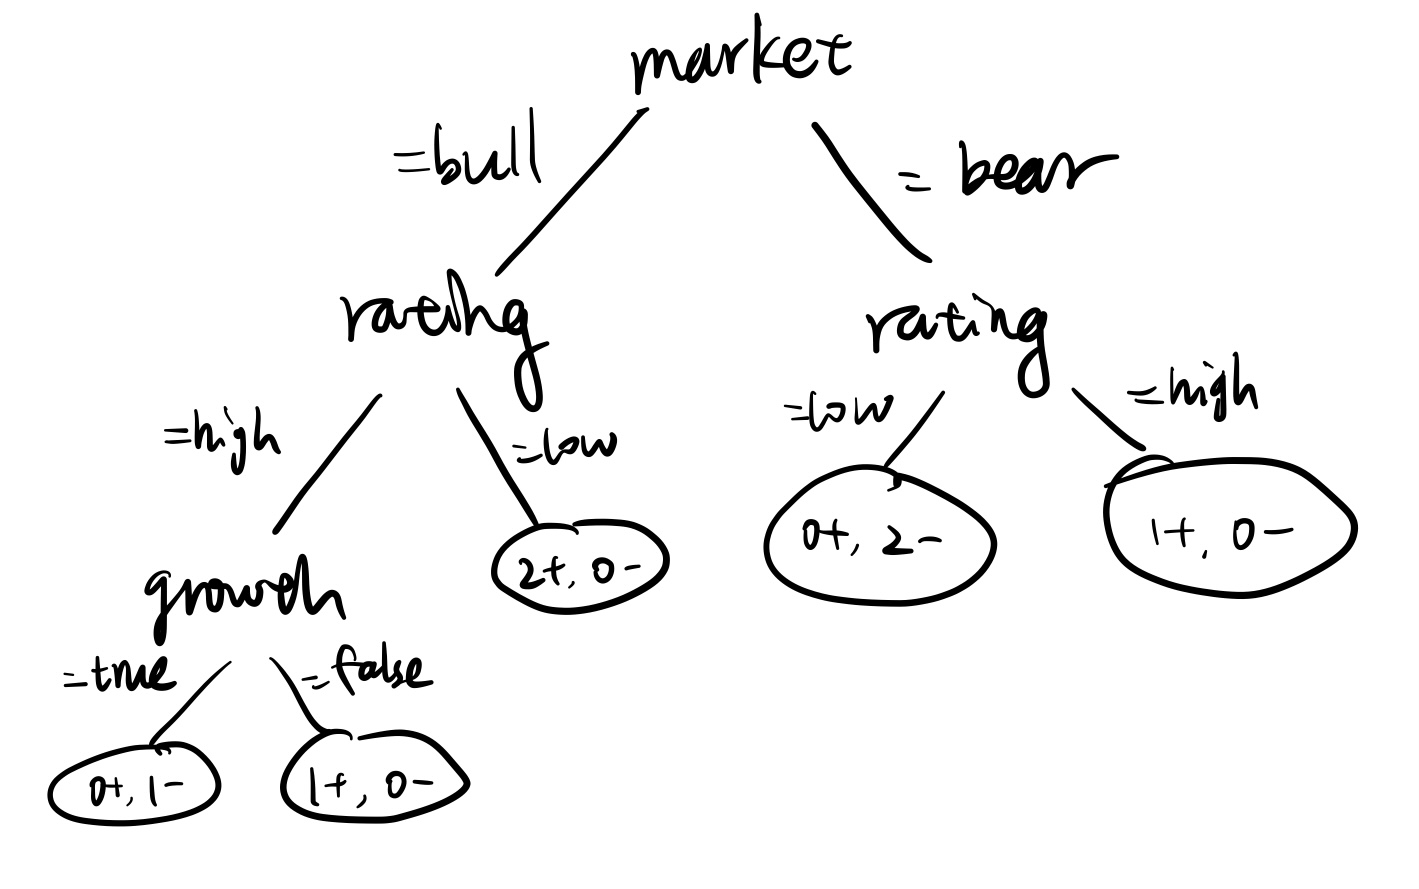 market
=bull
= bear
rating
rating
=high
=low
=low
=high
2+, 0-
0+, 2-
1+, 0-
growth
=true
=false
0+, 1-
1+, 0-